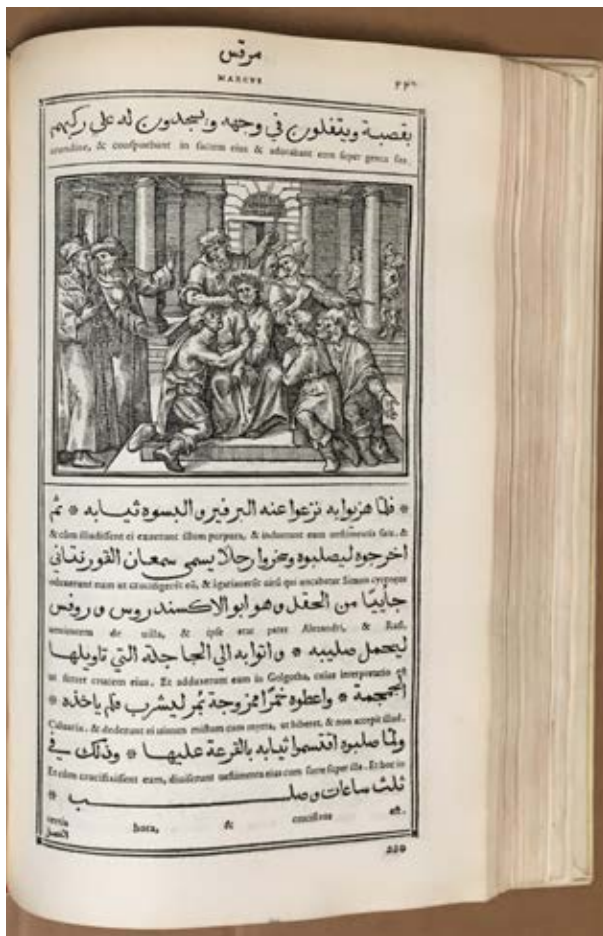 مرقس
MARCVS
بقصبة ويتفلون في وجهه ويسجدون له على ركبهم
arundine, & conspuebant in faciem eius & adorabant eum super genua sua.
* فلما هزيوا به نزعوا عنه البرفير والبسوه ثيابه * ثم
& cùm illusissent ei exuerunt illum purpura, & induerunt eum uestimentis suis. &
اخرجوه ليصلبوه وسخروا رجلا يسمى سمعان القورنناني
eduxerunt eum ut crucifigerēt eū, & āgariauerūt uirū qui uocabatur Simon cyreneus
جاييا من الحقل وهو ابو الاكسندروس وروفس
uenientem de uilla, & ipse erat pater Alexandri, & Rufi.
ليحمل صليبه * واتوا به الى الجاجلة التي تاويلها
ut ferret crucem eius. Et adduxerunt eum in Golgotha, cuius interpretatio est
الجمجمة * واعطوه خمرا ممزوجة بمر ليشرب فلم ياخذه *
Caluaria. & dederunt ei uinum mixtum cum myrra, ut biberet, & non accepit illud.
ولما صلبوه اقتسموا ثيابه بالقرعة عليها * وذلك في
Et cùm crucifixissent eum, diuiserunt uestimenta eius cum sorte super illa. Et hoc in
ثلث ساعات وصلب *
tertia hora, & crucifixus est.